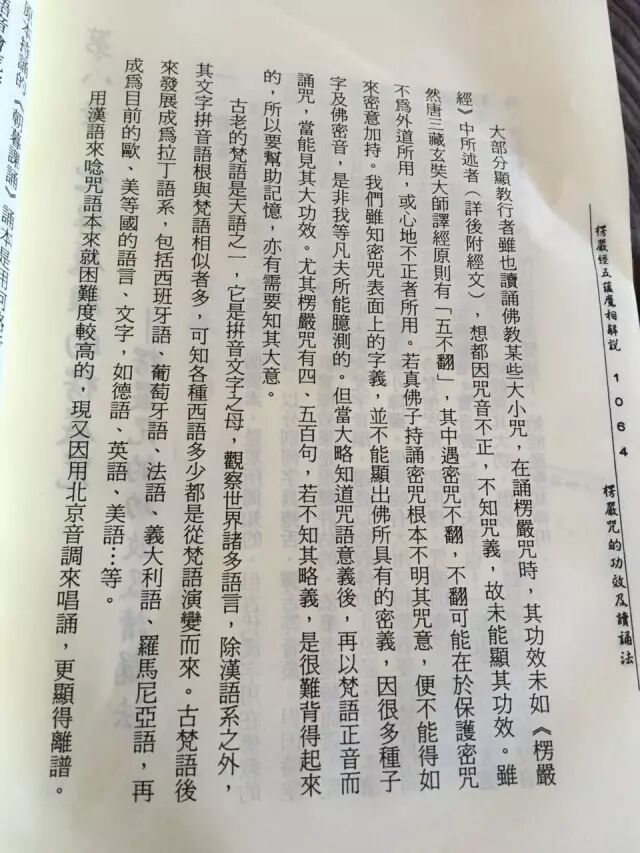 楞嚴經五蘊魔相解說
1064
楞嚴咒的功效及讀誦法
大部分顯教行者雖也讀誦佛教某些大小咒，在誦楞嚴咒時，其功效未如《楞嚴
經》中所述者（詳後附經文），想都因咒音不正，不知咒義，故未能顯其功效。雖
然唐三藏玄奘大師譯經原則有「五不翻」，其中遇密咒不翻，不翻可能在於保護密咒
不爲外道所用，或心地不正者所用。若真佛子持誦密咒根本不明其咒意，便不能得如
來密意加持。我們雖知密咒表面上的字義，並不能顯出佛所具有的密義，因很多種子
字及佛密音，是非我等凡夫所能臆測的。但當大略知道咒語意義後，再以梵語正音而
誦咒，當能見其大功效。尤其楞嚴咒有四、五百句，若不知其略義，是很難背得起來
的，所以要幫助記憶，亦有需要知其大意。
古老的梵語是天語之一，它是拼音文字之母，觀察世界諸多語言，除漢語系之外，
其文字拼音語根與梵語相似者多，可知各種西語多少都是從梵語演變而來。古梵語後
來發展成爲拉丁語系，包括西班牙語、葡萄牙語、法語、義大利語、羅馬尼亞語，再
成爲目前的歐、美等國的語言、文字，如德語、英語、美語…等。
用漢語來唸咒語本來就困難度較高的，現又因用北京音調來唱誦，更顯得離譜。
《朝暮課誦》誦本是用